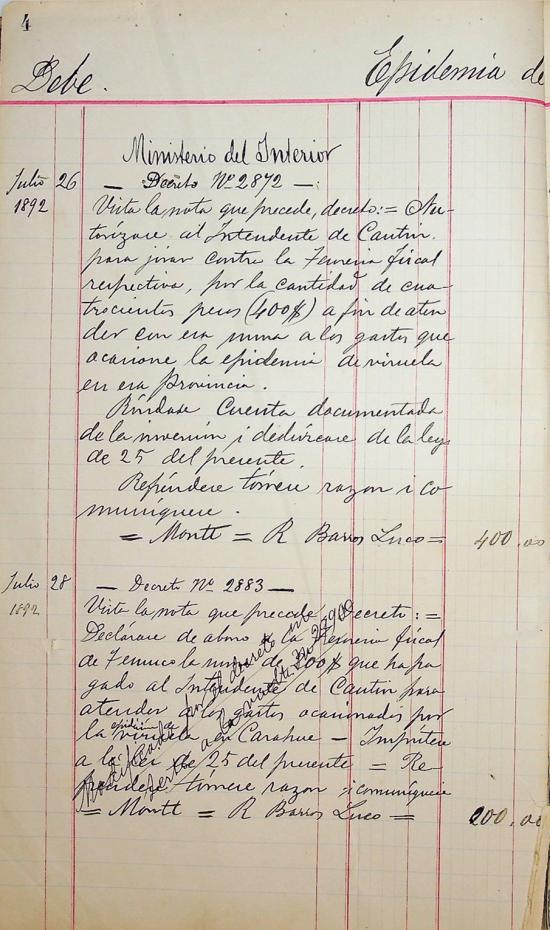 4
Debe. Epidemia de
Ministerio del Interior
Julio 26 — Decreto Nº 2872 —
1892 Vista la nota que precede, decreto: = Au-
torízase al Intendente de Cautin
para jirar contra la Tesoreria fiscal
respectiva, por la cantidad de cua-
trocientos pesos (400$) a fin de aten
der con esa suma a los gastos que
ocasione la epidemia de viruela
en esa Provincia.
Ríndase Cuenta documentada
de la inversion i dedúzcase de la ley
de 25 del presente.
Refréndese tómese razon i co
muníquese.
= Montt = R Barros Luco = 400.00
Julio 28 — Decreto Nº 2883 —
1892 Vista la nota que precede Decreto: =
Declárase de abono a la Tesoreria fiscal
de Temuco la suma de 200$ que ha pa
gado al Intendente de Cautin para
atender a los gastos ocasionados por
epidemia de
la viruela en Carahue — Impútese
a la lei de 25 del presente = Re-
fréndese tómese razon i comuníquese
= Montt = R Barros Luco = 200.00
Modificado por el decreto
a la vuelta